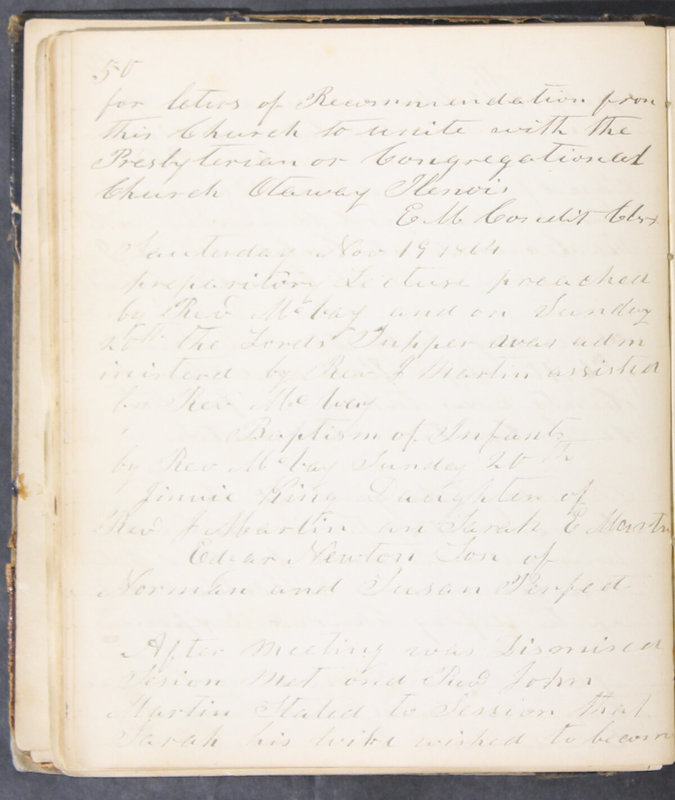 50
for leters of Recommendation from
this Church to unite with the
Presbyterian or Congregational
Church Otaway Ilenois
E M Condit Clrk
Sauterday Nov 19 1864
preparitory Lecture preached
by Rev McVay and on Sunday
20th the Lords Supper was adm
inisterd by Rev J Martin assisted
by Rev McVay
Baptism of Infants
by Rev McVay Sunday 20th
Jinnie King Daughter of
Rev J Martin an Sarah E Martin
Edgar Newton Son of
Norman and Susan
After meeting was Dismised
Sesion Met and Rev John
Martin Stated to Session that
Sarah his wife wished to become